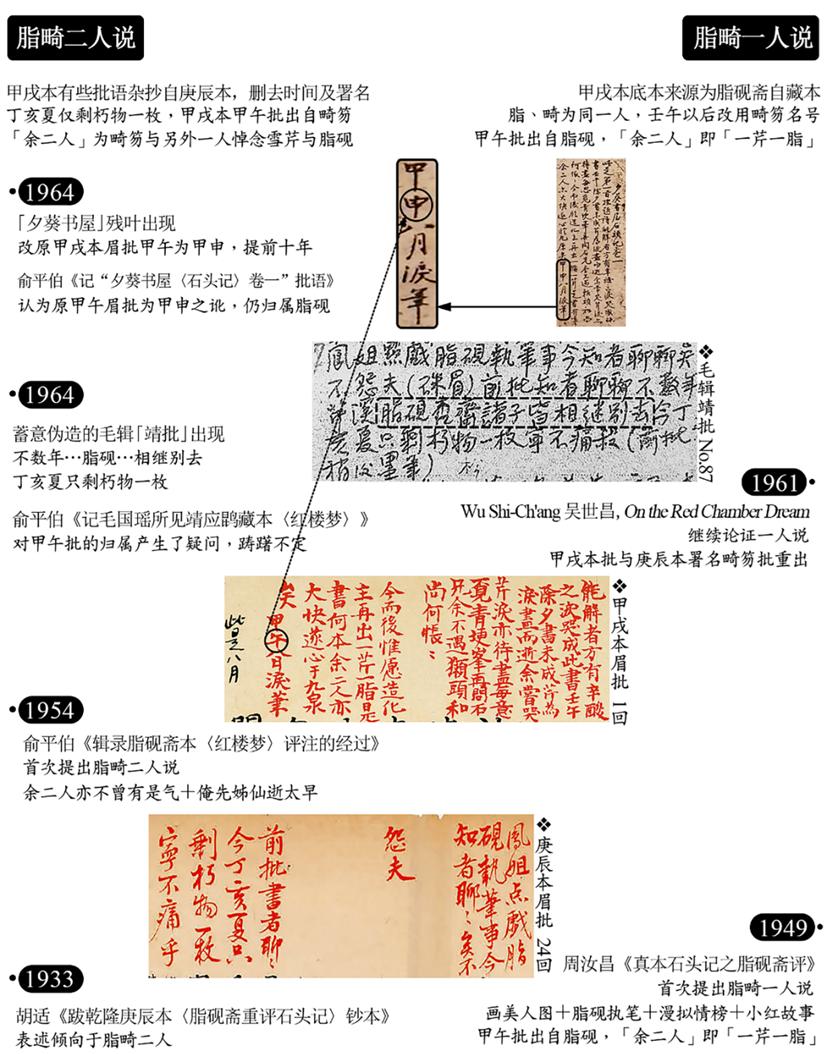 脂畸二人说
脂畸一人说
甲戌本有些批语杂抄自庚辰本，删去时间及署名
丁亥夏仅剩朽物一枚，甲戌本甲午批出自畸笏
「余二人」为畸笏与另外一人悼念雪芹与脂砚
甲戌本底本来源为脂砚斋自藏本
脂、畸为同一人，壬午以后改用畸笏名号
甲午批出自脂砚，「余二人」即「一芹一脂」
1964
「夕葵书屋」残叶出现
改原甲戌本眉批甲午为甲申，提前十年
俞平伯《记“夕葵书屋〈石头记〉卷一”批语》
认为原甲午眉批为甲申之讹，仍归属脂砚
甲申八月淚筆
夕葵書屋石頭記卷一
甲申八月淚筆
鳳姐點戲脂硯執筆事今知者聊聊矣
不怨夫(朱眉)前批知者聊聊不數年
芹溪脂硯杏齋諸子皆相继别去今丁
亥夏只剩朽物一枚寧不痛殺(前批
墨筆)
❖毛辑靖批 No.87
1964
蓄意伪造的毛辑「靖批」出现
不数年…脂砚…相继别去
丁亥夏只剩朽物一枚
俞平伯《记毛国瑶所见靖应鹍藏本〈红楼梦〉》
对甲午批的归属产生了疑问，踌躇不定
1961
Wu Shi-Ch'ang 吴世昌, On the Red Chamber Dream
继续论证一人说
甲戌本批与庚辰本署名畸笏批重出
❖甲戌本眉批 1回
能解者方有辛酸
之淚哭成此書壬午
除夕書未成芹為
淚盡而逝余嘗哭
芹淚亦待盡每意
覓青埂峯再問石
兄余不遇獺頭和
尚何悵〻
今而後惟愿造化
主再出一芹一脂是
書何本余二人亦
大快遂心于九泉
矣 甲午八月淚筆
此是八月
1954
俞平伯《辑录脂砚斋本〈红楼梦〉评注的经过》
首次提出脂畸二人说
余二人亦不曾有是气＋俺先姊仙逝太早
❖庚辰本眉批 24回
鳳姐点戲脂
硯執筆事今
知者聊〻矣不
怨夫
前批書者聊〻
今丁亥夏只
剩朽物一枚
寧不痛乎
1933
胡适《跋乾隆庚辰本〈脂砚斋重评石头记〉钞本》
表述倾向于脂畸二人
1949
周汝昌《真本石头记之脂砚斋评》
首次提出脂畸一人说
画美人图＋脂砚执笔＋漫拟情榜＋小红故事
甲午批出自脂砚，「余二人」即「一芹一脂」